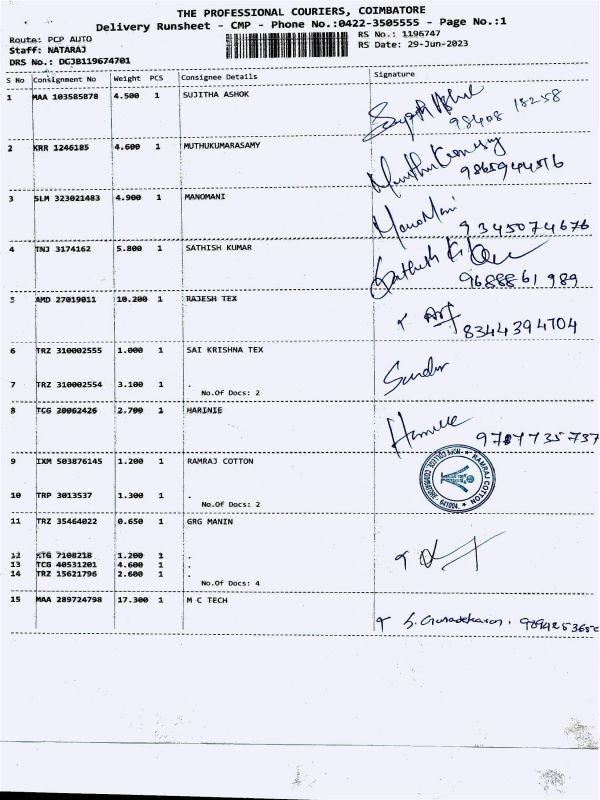 THE PROFESSIONAL COURIERS, COIMBATORE
Delivery Runsheet - CMP - Phone No.:0422-3505555 - Page No.:1
Route: PCP AUTO
RS No.: 1196747
Staff: NATARAJ
RS Date: 29-Jun-2023
DRS No.: DCJB119674701
S No Consignment No Weight PCS Consignee Details Signature
1 MAA 103585878 4.500 1 SUJITHA ASHOK
98408 18258
2 KRR 1246185 4.600 1 MUTHUKUMARASAMY
9865944516
3 SLM 323021483 4.900 1 MANOMANI
ManoMani
9345074676
4 TNJ 3174162 5.800 1 SATHISH KUMAR
9688861 989
5 AMD 27019011 10.200 1 RAJESH TEX
8344394704
6 TRZ 310002555 1.000 1 SAI KRISHNA TEX
7 TRZ 310002554 3.100 1 .
No.Of Docs: 2
8 TCG 20062426 2.700 1 HARINIE
9 IXM 503876145 1.200 1 RAMRAJ COTTON
RAMRAJ COTTON
10 TRP 3013537 1.300 1 .
No.Of Docs: 2
11 TRZ 35464022 0.650 1 GRG MANIN
12 KTG 7108218 1.200 1 .
13 TCG 40531201 4.600 1 .
14 TRZ 15621796 2.600 1 .
No.Of Docs: 4
15 MAA 289724798 17.300 1 M C TECH